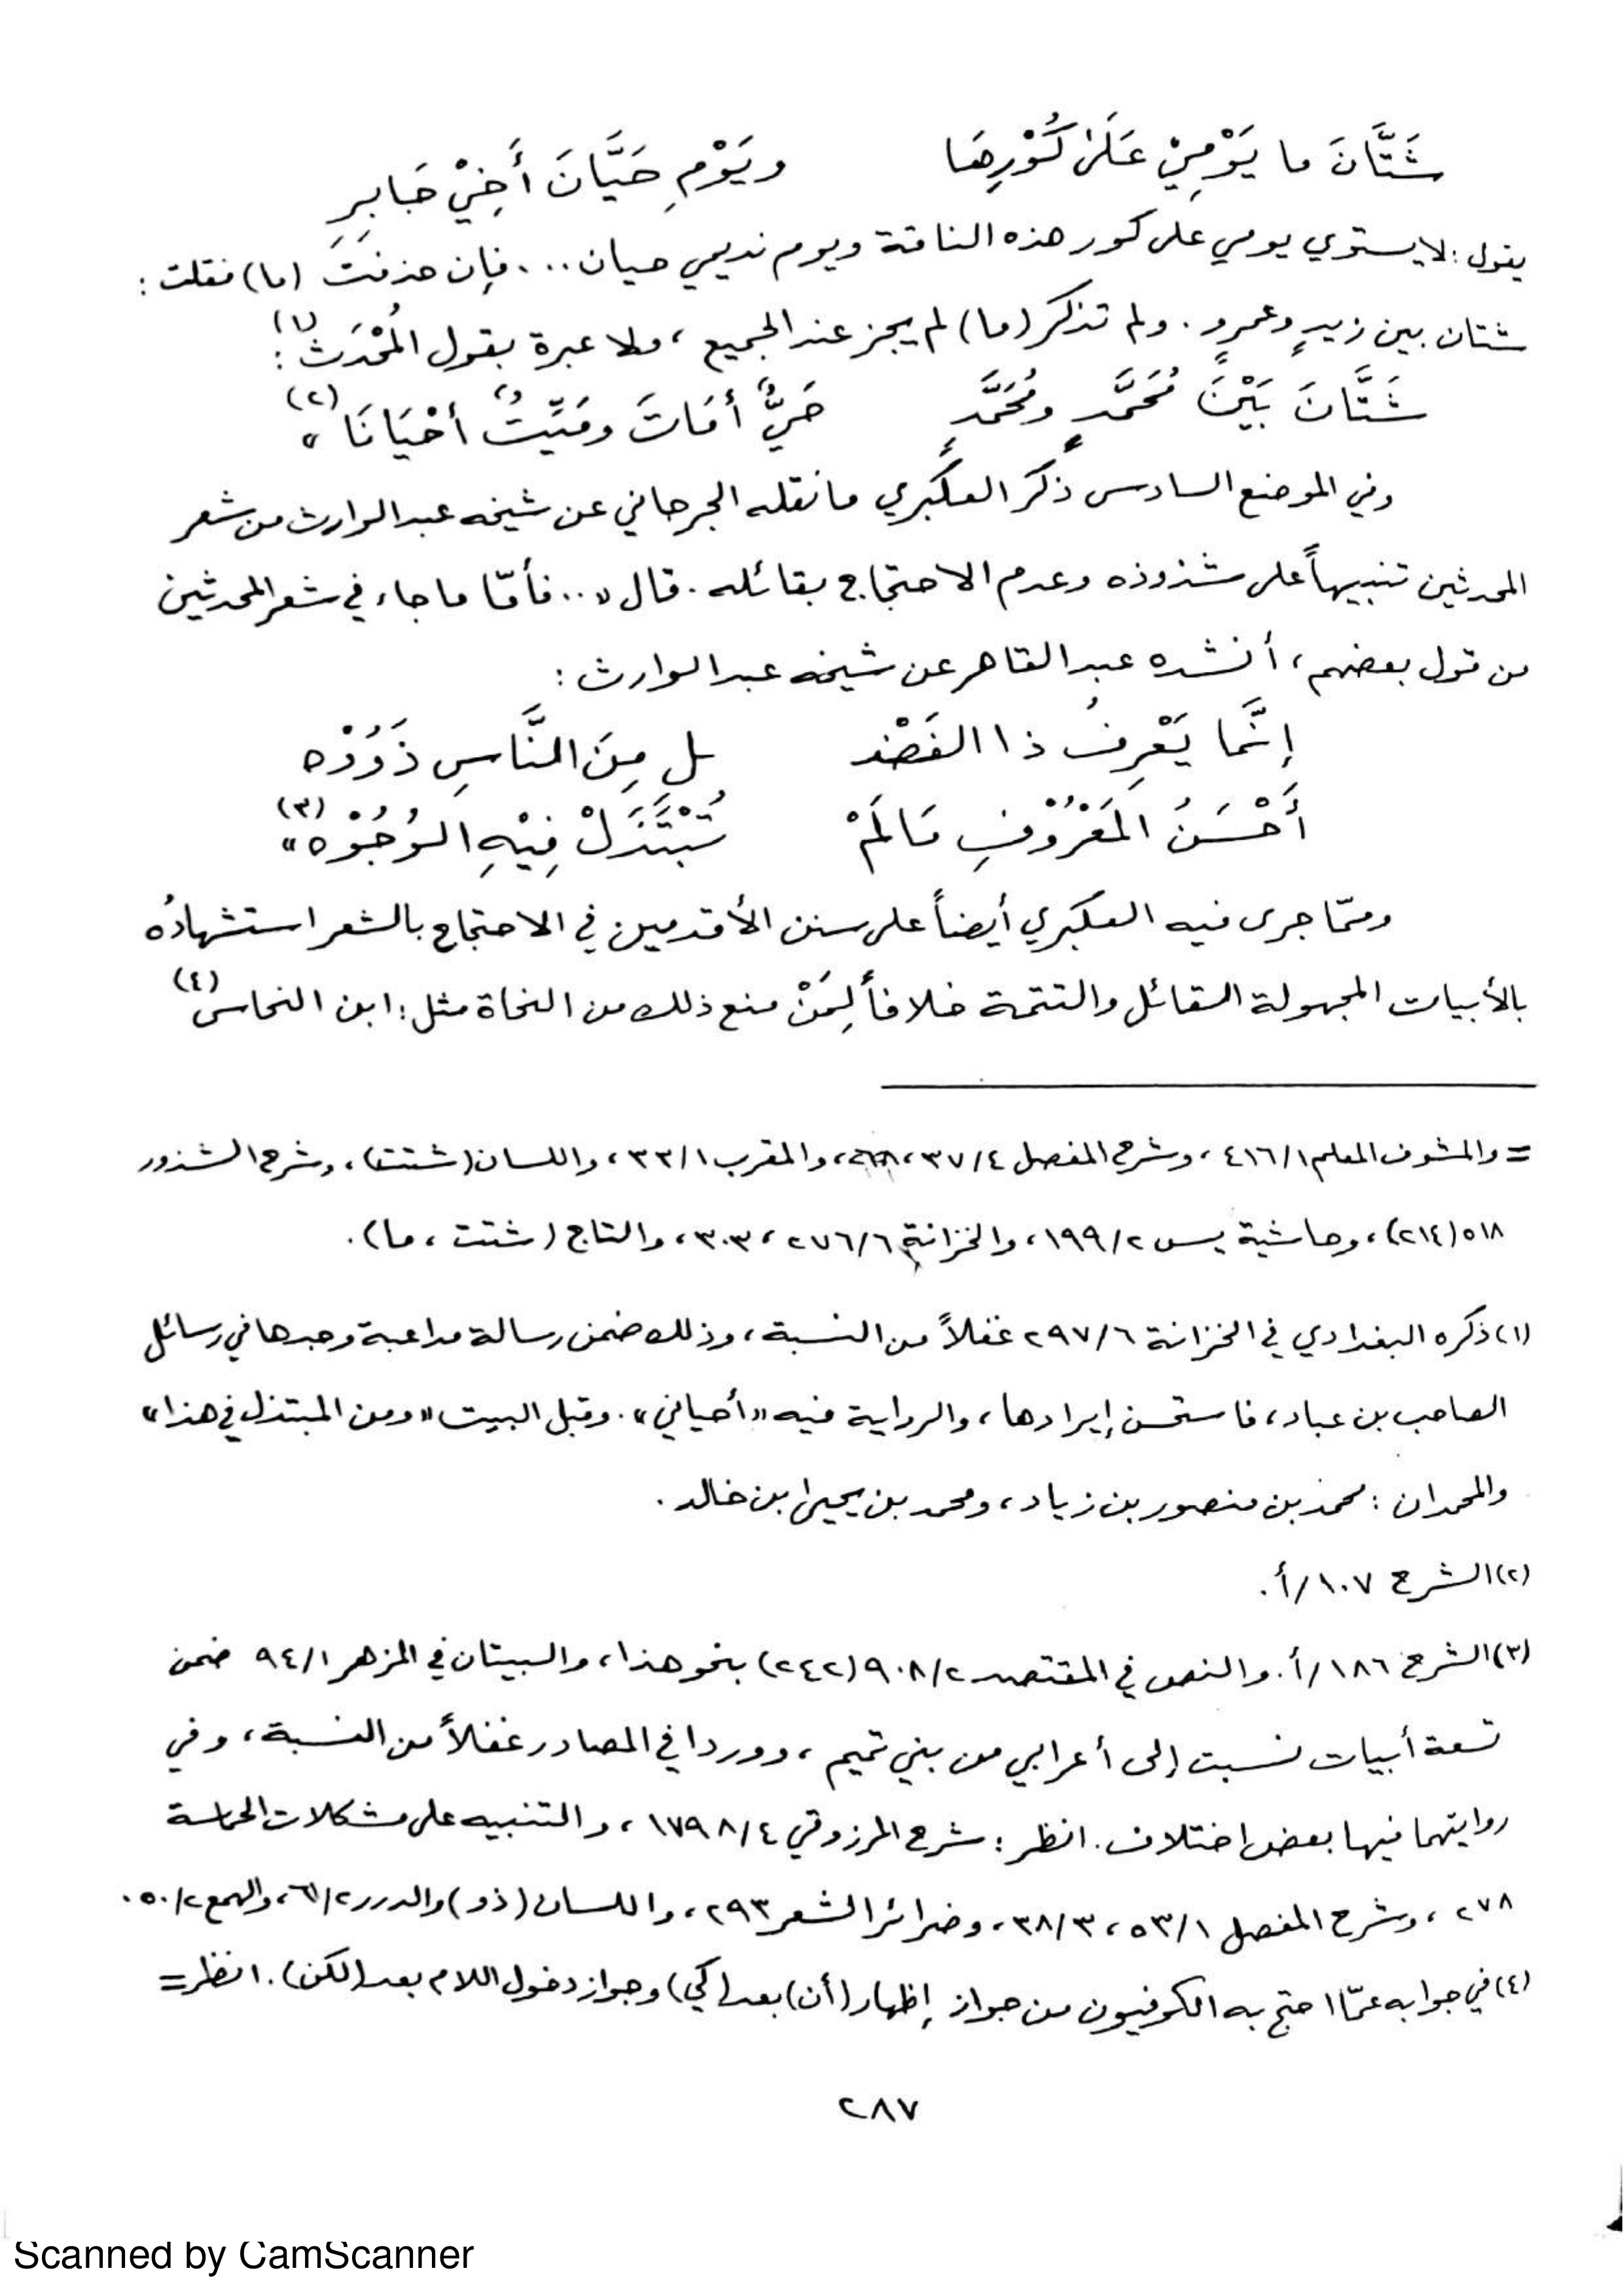 شَتَّانَ ما يَوْمِيْ عَلَىٰ كُوْرِهَا ويَوْمِ حَيَّانَ أَخِيْ جَابِرِ
يقول : لا يستوي يومي على كور هذه الناقة ويوم نديمي حيان ... فإن حذفتَ (ما) فقلت :
شتان بين زيدٍ وعمروٍ . ولم تذكر (ما) لم يجز عند الجميع ، ولا عبرة بقول المُحْدَث(١) :
شَتَّانَ بَيْنَ مُحَمَّدٍ ومُحَمَّدٍ حَيٌّ أمَاتَ ومَيِّتٌ أحْيَانَا »(٢)
وفي الموضع السادس ذكر العكبري ما نقله الجرجاني عن شيخه عبد الوارث من شعر
المحدثين تنبيهاً على شذوذه وعدم الاحتجاج بقائله . قال « .. فأمّا ما جاء في شعر المحدثين
من قول بعضهم ، أنشده عبد القاهر عن شيخه عبد الوارث :
إنَّما يَعْرِفُ ذا الفَضْـ ـلِ مِنَ النَّاسِ ذَوُوْه
أَحْسَنُ المَعْرُوْفِ مَالَمْ تُبْتَذَلْ فِيْهِ الوُجُوْه »(٣)
وممّا جرى فيه العكبري أيضاً على سنن الأقدمين في الاحتجاج بالشعر استشهادُه
بالأبيات المجهولة القائل والتتمة خلافاً لِمَنْ منع ذلك من النحاة مثل : ابن النحاس(٤)
= والمشوف المعلم ١/٤١٦ ، وشرح المفصل ٤/٣٧ ، ٦٨ ، والمقرب ١/٣٣ ، واللسان (شتت) ، وشرح الشذور
٥١٨ (٢١٤) ، وحاشية يس ٢/١٩٩ ، والخزانة ٦/٢٧٦ ، ٣٠٣ ، والتاج (شتت ، ما) .
(١) ذكره البغدادي في الخزانة ٦/٢٩٧ غفلاً من النسبة ، وذلك ضمن رسالة مداعبة وجدها في رسائل
الصاحب بن عباد ، فاستحسن إيرادها ، والرواية فيه «أحياني» . وقبل البيت «ومن المبتذل في هذا»
والمحمدان : محمد بن منصور بن زياد ، ومحمد بن يحيىٰ بن خالد .
(٢) الشرح ١٠٧/أ .
(٣) الشرح ١٨٦/أ . والنص في المقتصد ٢/٩٠٨ (٢٤٢) بنحو هذا ، والبيتان في المزهر ١/٩٤ ضمن
تسعة أبيات نسبت إلى أعرابي من بني تميم ، ووردا في المصادر غفلاً من النسبة ، وفي
روايتهما فيها بعض اختلاف . انظر : شرح المرزوقي ٤/١٧٩٨ ، والتنبيه على مشكلات الحماسة
٢٧٨ ، وشرح المفصل ١/٥٣ ، ٣/٣٨ ، وضرائر الشعر ٢٩٣ ، واللسان (ذو) والدرر ٢/٦١ ، والهمع ٢/٥٠ .
(٤) في جوابه عمّا احتج به الكوفيون من جواز إظهار (أن) بعد (كي) وجواز دخول اللام بعد (لكن) . انظر =
٢٨٧
Scanned by CamScanner